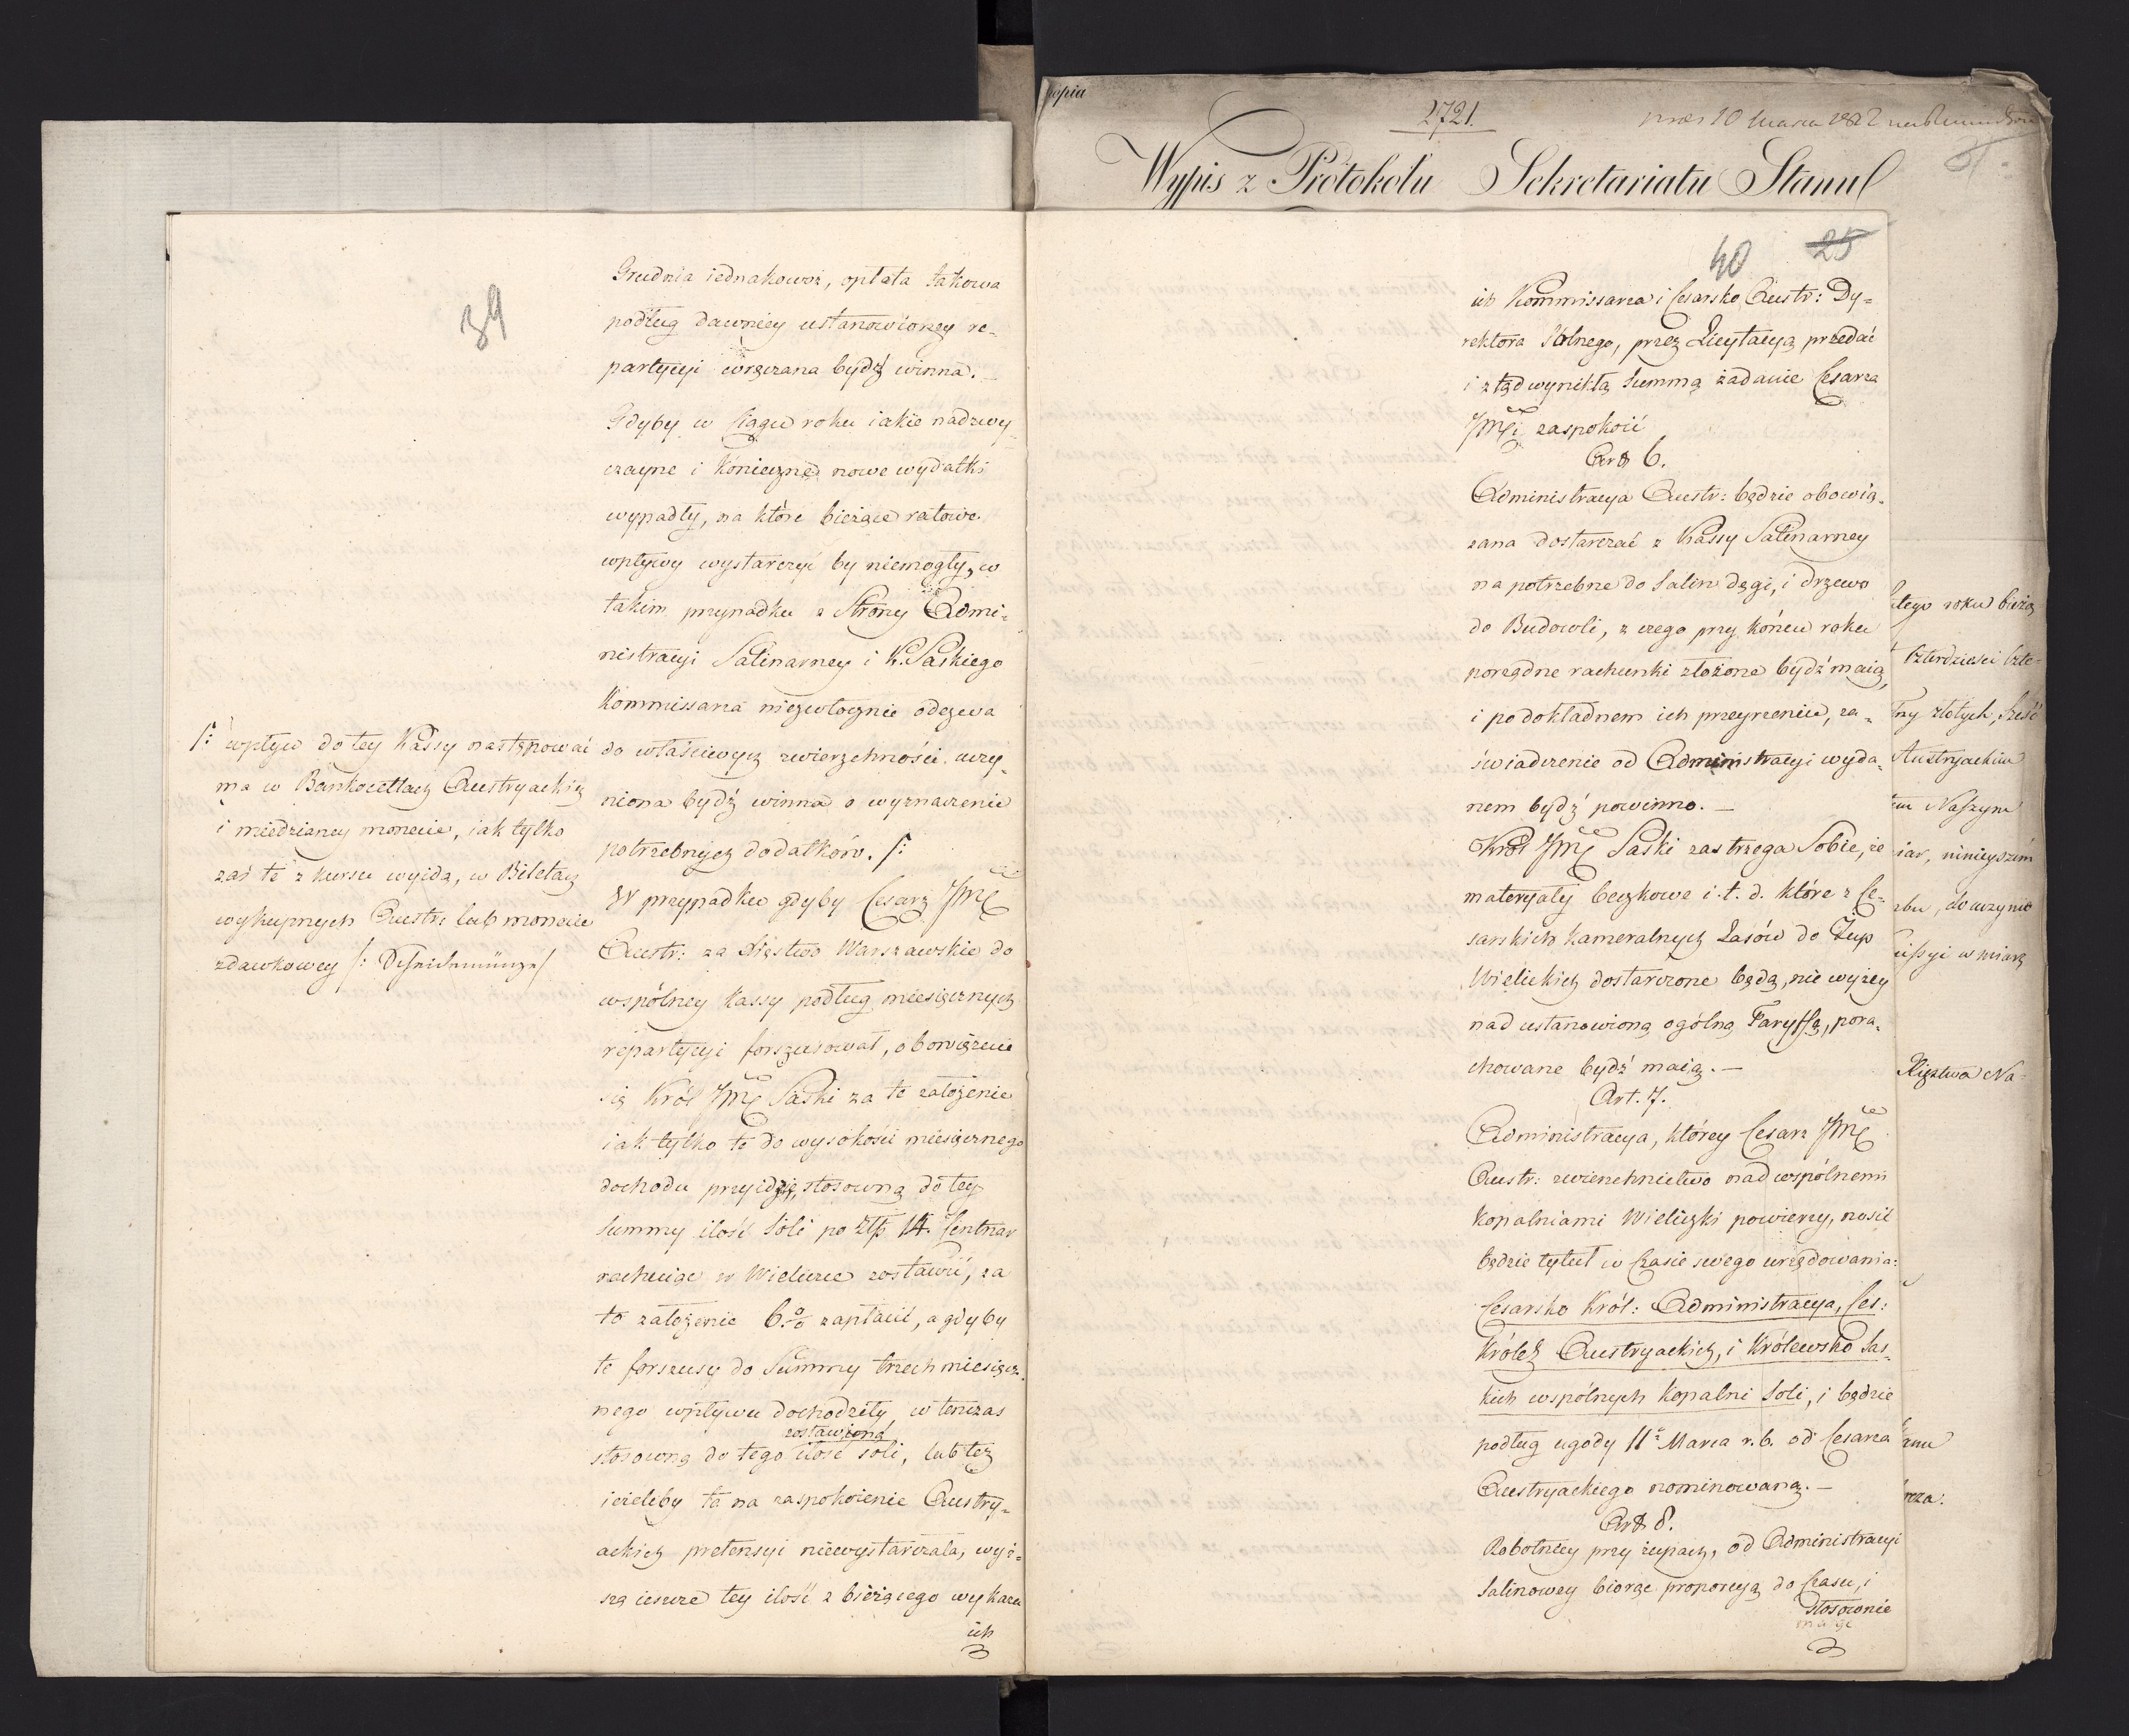 39
Grudnia iednakowoż, opłata takowa
podług dawniey ustanowioney re-
partycyi wręczana bydź winna. —
Gdyby w Ciągu roku iakie nadzwy-
czayne i Konieczne nowe wydatki
wypadły, na które bieżące ratowe
wpływy wystarczyć by niemogły, w
takim przypadku z Strony Admi-
nistracyi Salinarney i K. Saskiego
Kommissarza niezwłocznie odezwa
do właściwych zwierzchności uczy-
niona bydź winna o wyznaczenie
potrzebnych dodatków. /:
W przypadku gdyby Cesarz Jmć
Austr: za Xięstwo Warszawskie do
wspólney Kassy podług miesięcznych
repartycyi forszusował, obowięzuie
się Król Jmć Saski za to założenie
iak tylko te do wysokości miesięcznego
dochodu przyidzie, stosowną do tey
Summy ilość Soli po Złp 14. Centnar
rachuiąc w Wieliczce zostawić, za
to założenie 6 % zapłacić, a gdyby
te forszusy do Summy trzech miesięcz-
nego wpływu dochodziły, w tenczas
zostawioną
stosowną do tego ilość soli, lub też
ieżeliby ta na zaspokoienie Austry-
ackich pretensyi niewystarczała, wyż-
szą ieszcze tey ilość z bieżącego wykazu
ich
/: wpływ do tey Kassy nastąpować
ma w Bankocetlach Austryackich
i miedzianey monecie, iak tylko
zaś te z kursu wyidą, w Biletach
wykupnych Austr: lub monecie
zdawkowey /: Scheidemünze /
copia
2721.
Wypis z Protokołu Sekretariatu Stanu
40 25
ich Kommissarza i Cesarsko Austr: Dy-
rektora Solnego, przez Licytacyą przedać
i ztąd wynikłą Summą żądanie Cesarza
Jmći zaspokoić
Art 6.
Administracya Austr: będzie obowią-
zana dostarczać z Kassy Salinarney
na potrzebne do Salin dęgi, i drzewo
do Budowli, z czego przy końcu roku
porządne rachunki złożone bydź maią,
i po dokładnem ich przeyrzeniu, za-
świadczenie od Administracyi wyda-
nem bydź powinno. —
Król Jmć Saski zastrzega Sobie, że
materyały beczkowe i. t. d. które z Ce-
sarskich Kameralnych Lasów do Żup
Wielickich dostarczone będą, nie wyżey
nad ustanowioną ogólną Taryffą, pora-
chowane bydź maią. —
Art. 7.
Administracya, którey Cesarz Jmć
Austr: zwierzchnictwo nad wspólnemi
Kopalniami Wieliczki powierzy, nosić
będzie tytuł w Czasie swego urzędowania:
Cesarsko Król: Administracya, Ces:
Królch Austryackich, i Królewsko Sas-
kich wspólnych Kopalni Soli, i będzie
podług ugody 11º Marca r. b. od Cesarza
Austryackiego nominowaną. —
Art 8.
Robotnicy przy żupach, od Administracyi
Salinowey biorąc proporcyą do Czasu, i
stosownie
roku bieżą
Czterdzieści Czte-
złotych, Sześć
Austryackim
Naszym
ninieyszém
w miarę
Xięztwa Na-